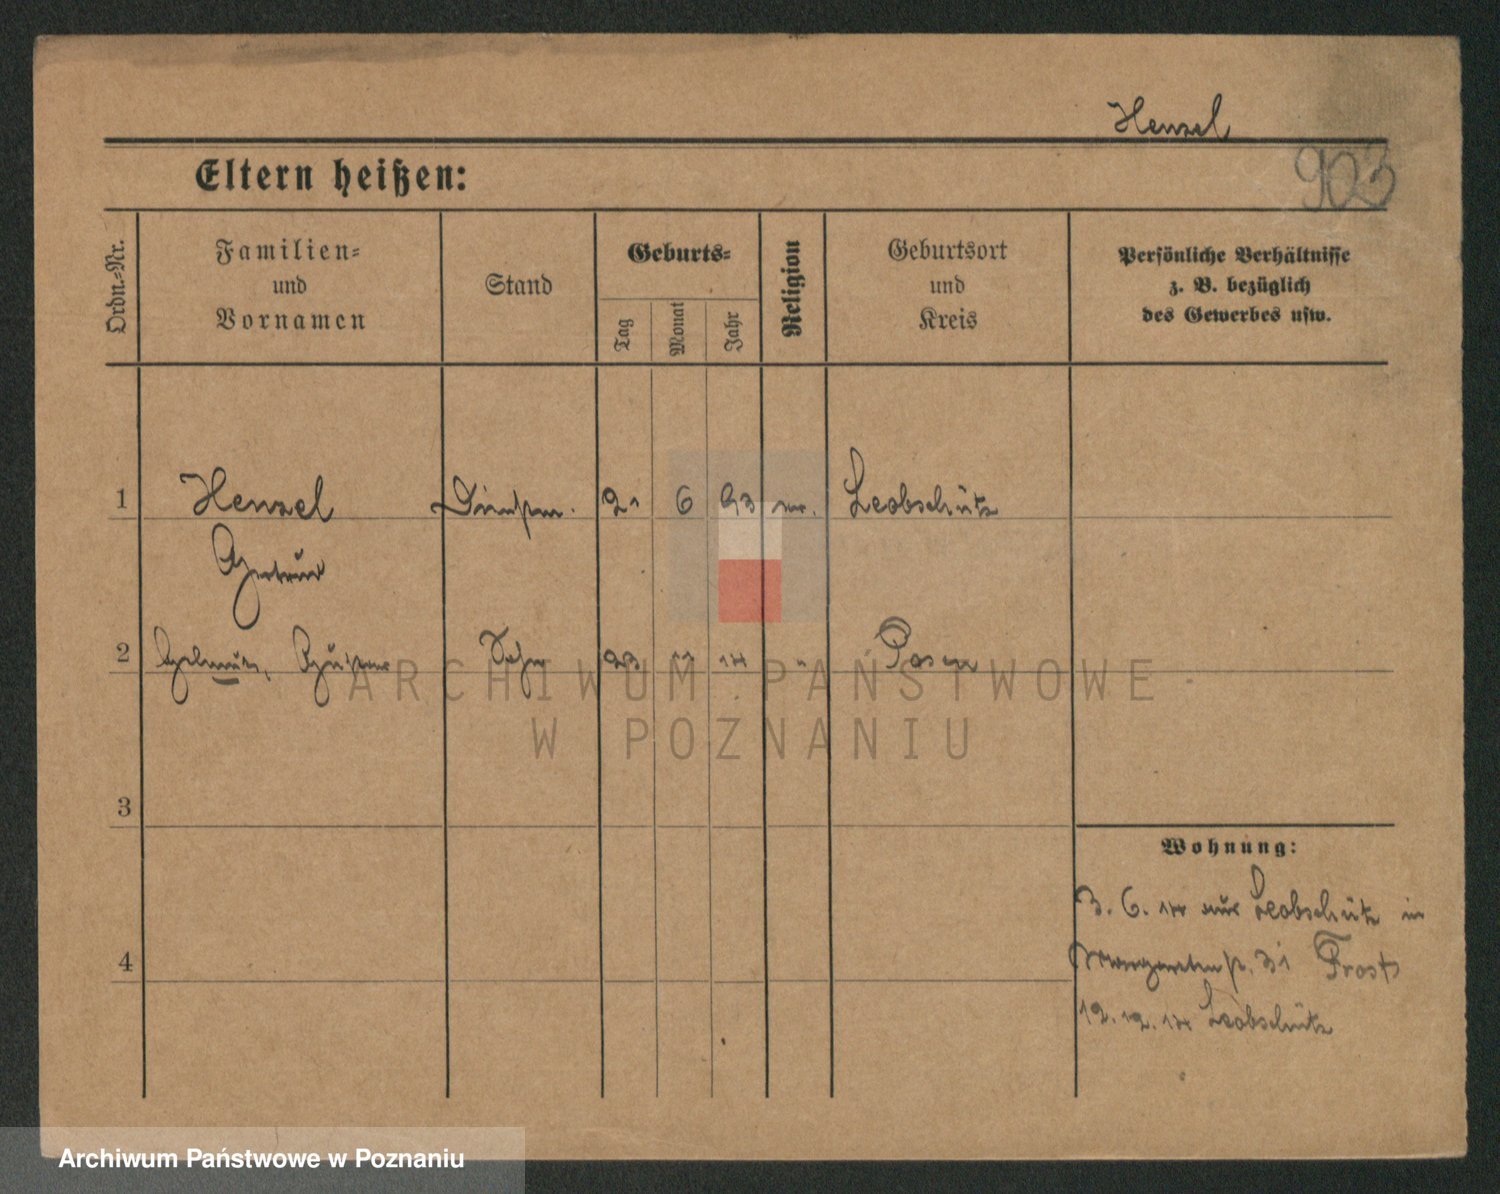 Henzel
903
Eltern heißen:
Ordn.-Nr.
Familien-
und
Vornamen
Stand
Geburts-
Tag
Monat
Jahr
Religion
Geburtsort
und
Kreis
Persönliche Verhältnisse
z. B. bezüglich
des Gewerbes usw.
1 Henzel 21 6 93 Leobschütz
Gertrud
2 Helmut, Gustav Sohn 23 11 14 " Posen
ARCHIWUM PAŃSTWOWE
W POZNANIU
3
Wohnung:
3. 6. 14 aus Leobschütz in
4
Margaretenstr. 31 Frost
12. 12. 14 Leobschütz
Archiwum Państwowe w Poznaniu